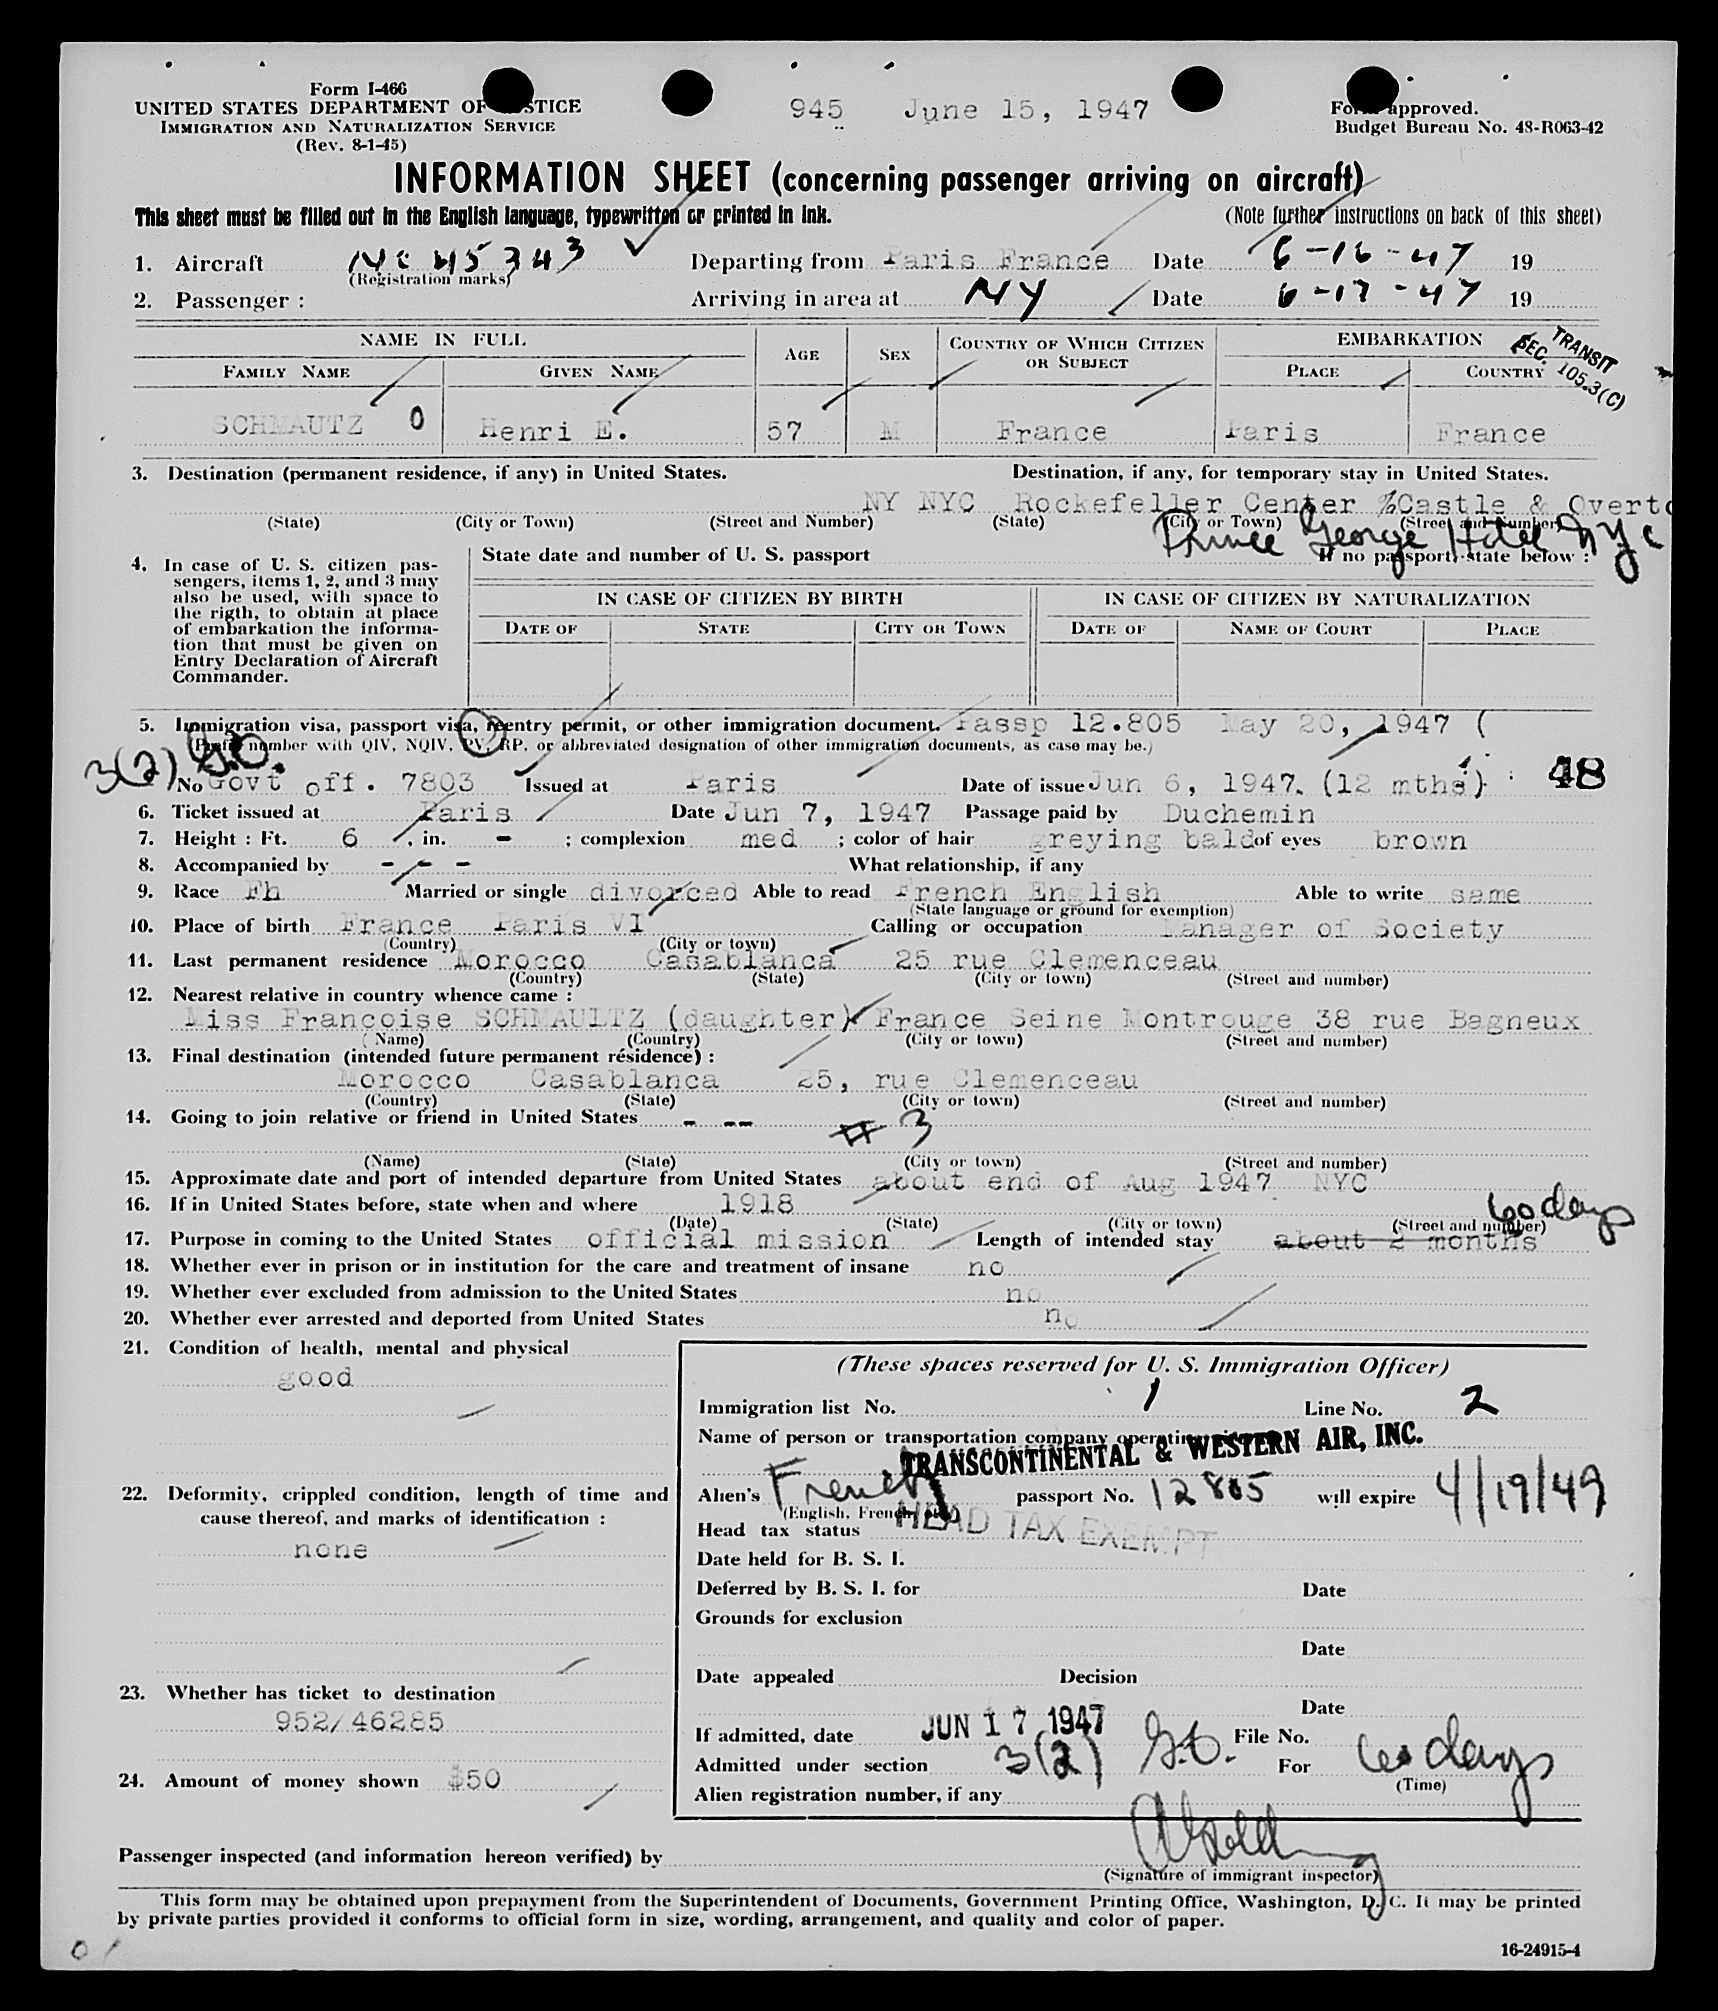 Form I-466
UNITED STATES DEPARTMENT OF JUSTICE
IMMIGRATION AND NATURALIZATION SERVICE
(Rev. 8-1-45)
945 June 15, 1947
Form approved.
Budget Bureau No. 48-R063-42
INFORMATION SHEET (concerning passenger arriving on aircraft)
This sheet must be filled out in the English language, typewritten or printed in ink.
(Note further instructions on back of this sheet)
1. Aircraft NC 45343 Departing from Paris France Date 6-16-47 19
(Registration marks)
2. Passenger : Arriving in area at NY Date 6-17-47 19
NAME IN FULL AGE SEX COUNTRY OF WHICH CITIZEN OR SUBJECT EMBARKATION
TRANSIT
SEC. 105.3(C)
FAMILY NAME GIVEN NAME PLACE COUNTRY
SCHMAUTZ 0 Henri E. 57 M France Paris France
3. Destination (permanent residence, if any) in United States. Destination, if any, for temporary stay in United States.
NY NYC Rockefeller Center %Castle & Overto
(State) (City or Town) (Street and Number) (State) (City or Town) (Street and Number)
Prince George Hotel NYC
4. In case of U. S. citizen pas-
sengers, items 1, 2, and 3 may
also be used, with space to
the rigth, to obtain at place
of embarkation the informa-
tion that must be given on
Entry Declaration of Aircraft
Commander.
State date and number of U. S. passport If no passport, state below :
IN CASE OF CITIZEN BY BIRTH IN CASE OF CITIZEN BY NATURALIZATION
DATE OF STATE CITY OR TOWN DATE OF NAME OF COURT PLACE
5. Immigration visa, passport visa, reentry permit, or other immigration document. Passp 12.805 May 20, 1947 (
(Prefix number with QIV, NQIV, PV, RP, or abbreviated designation of other immigration documents, as case may be.)
3(2) G.O.
No Govt off. 7803 Issued at Paris Date of issue Jun 6, 1947. (12 mths) 48
6. Ticket issued at Paris Date Jun 7, 1947 Passage paid by Duchemin
7. Height : Ft. 6 , in. - ; complexion med ; color of hair greying bald of eyes brown
8. Accompanied by - - - What relationship, if any
9. Race Fh Married or single divorced Able to read French English Able to write same
(State language or ground for exemption)
10. Place of birth France Paris VI Calling or occupation Manager of Society
(Country) (City or town)
11. Last permanent residence Morocco Casablanca 25 rue Clemenceau
(Country) (State) (City or town) (Street and number)
12. Nearest relative in country whence came :
Miss Françoise SCHMAULTZ (daughter) France Seine Montrouge 38 rue Bagneux
(Name) (Country) (City or town) (Street and number)
13. Final destination (intended future permanent résidence) :
Morocco Casablanca 25, rue Clemenceau
(Country) (State) (City or town) (Street and number)
14. Going to join relative or friend in United States - --
# 3
(Name) (State) (City or town) (Street and number)
15. Approximate date and port of intended departure from United States about end of Aug 1947 NYC
16. If in United States before, state when and where 1918
60 days
(Date) (State) (City or town) (Street and number)
17. Purpose in coming to the United States official mission Length of intended stay about 2 months
18. Whether ever in prison or in institution for the care and treatment of insane no
19. Whether ever excluded from admission to the United States no
20. Whether ever arrested and deported from United States no
21. Condition of health, mental and physical
good
22. Deformity, crippled condition, length of time and
cause thereof, and marks of identification :
none
23. Whether has ticket to destination
952/46285
24. Amount of money shown $50
(These spaces reserved for U. S. Immigration Officer)
Immigration list No. 1 Line No. 2
Name of person or transportation company operating
TRANSCONTINENTAL & WESTERN AIR, INC.
Alien's French passport No. 12805 will expire 4/19/49
(English, French, etc.)
Head tax status HEAD TAX EXEMPT
Date held for B. S. I.
Deferred by B. S. I. for Date
Grounds for exclusion
Date
Date appealed Decision
Date
If admitted, date JUN 17 1947 File No.
Admitted under section 3(2) G.O. For 60 days
(Time)
Alien registration number, if any
Passenger inspected (and information hereon verified) by
(Signature of immigrant inspector)
This form may be obtained upon prepayment from the Superintendent of Documents, Government Printing Office, Washington, D. C. It may be printed
by private parties provided it conforms to official form in size, wording, arrangement, and quality and color of paper.
16-24915-4